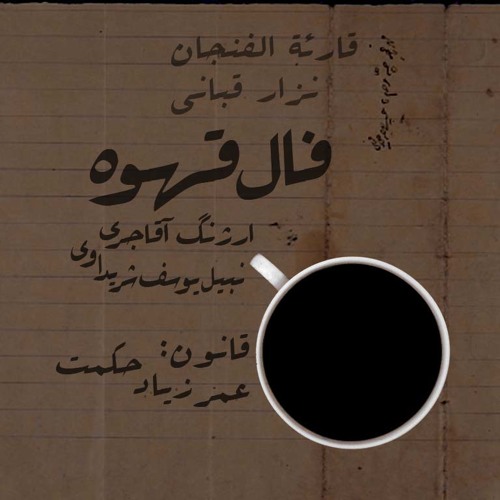 قارئة الفنجان
نزار قبانی
فال قهوه
ارژنگ آقاجری
نبیل یوسف شریداوی
قانون: حکمت
عمر زیاد